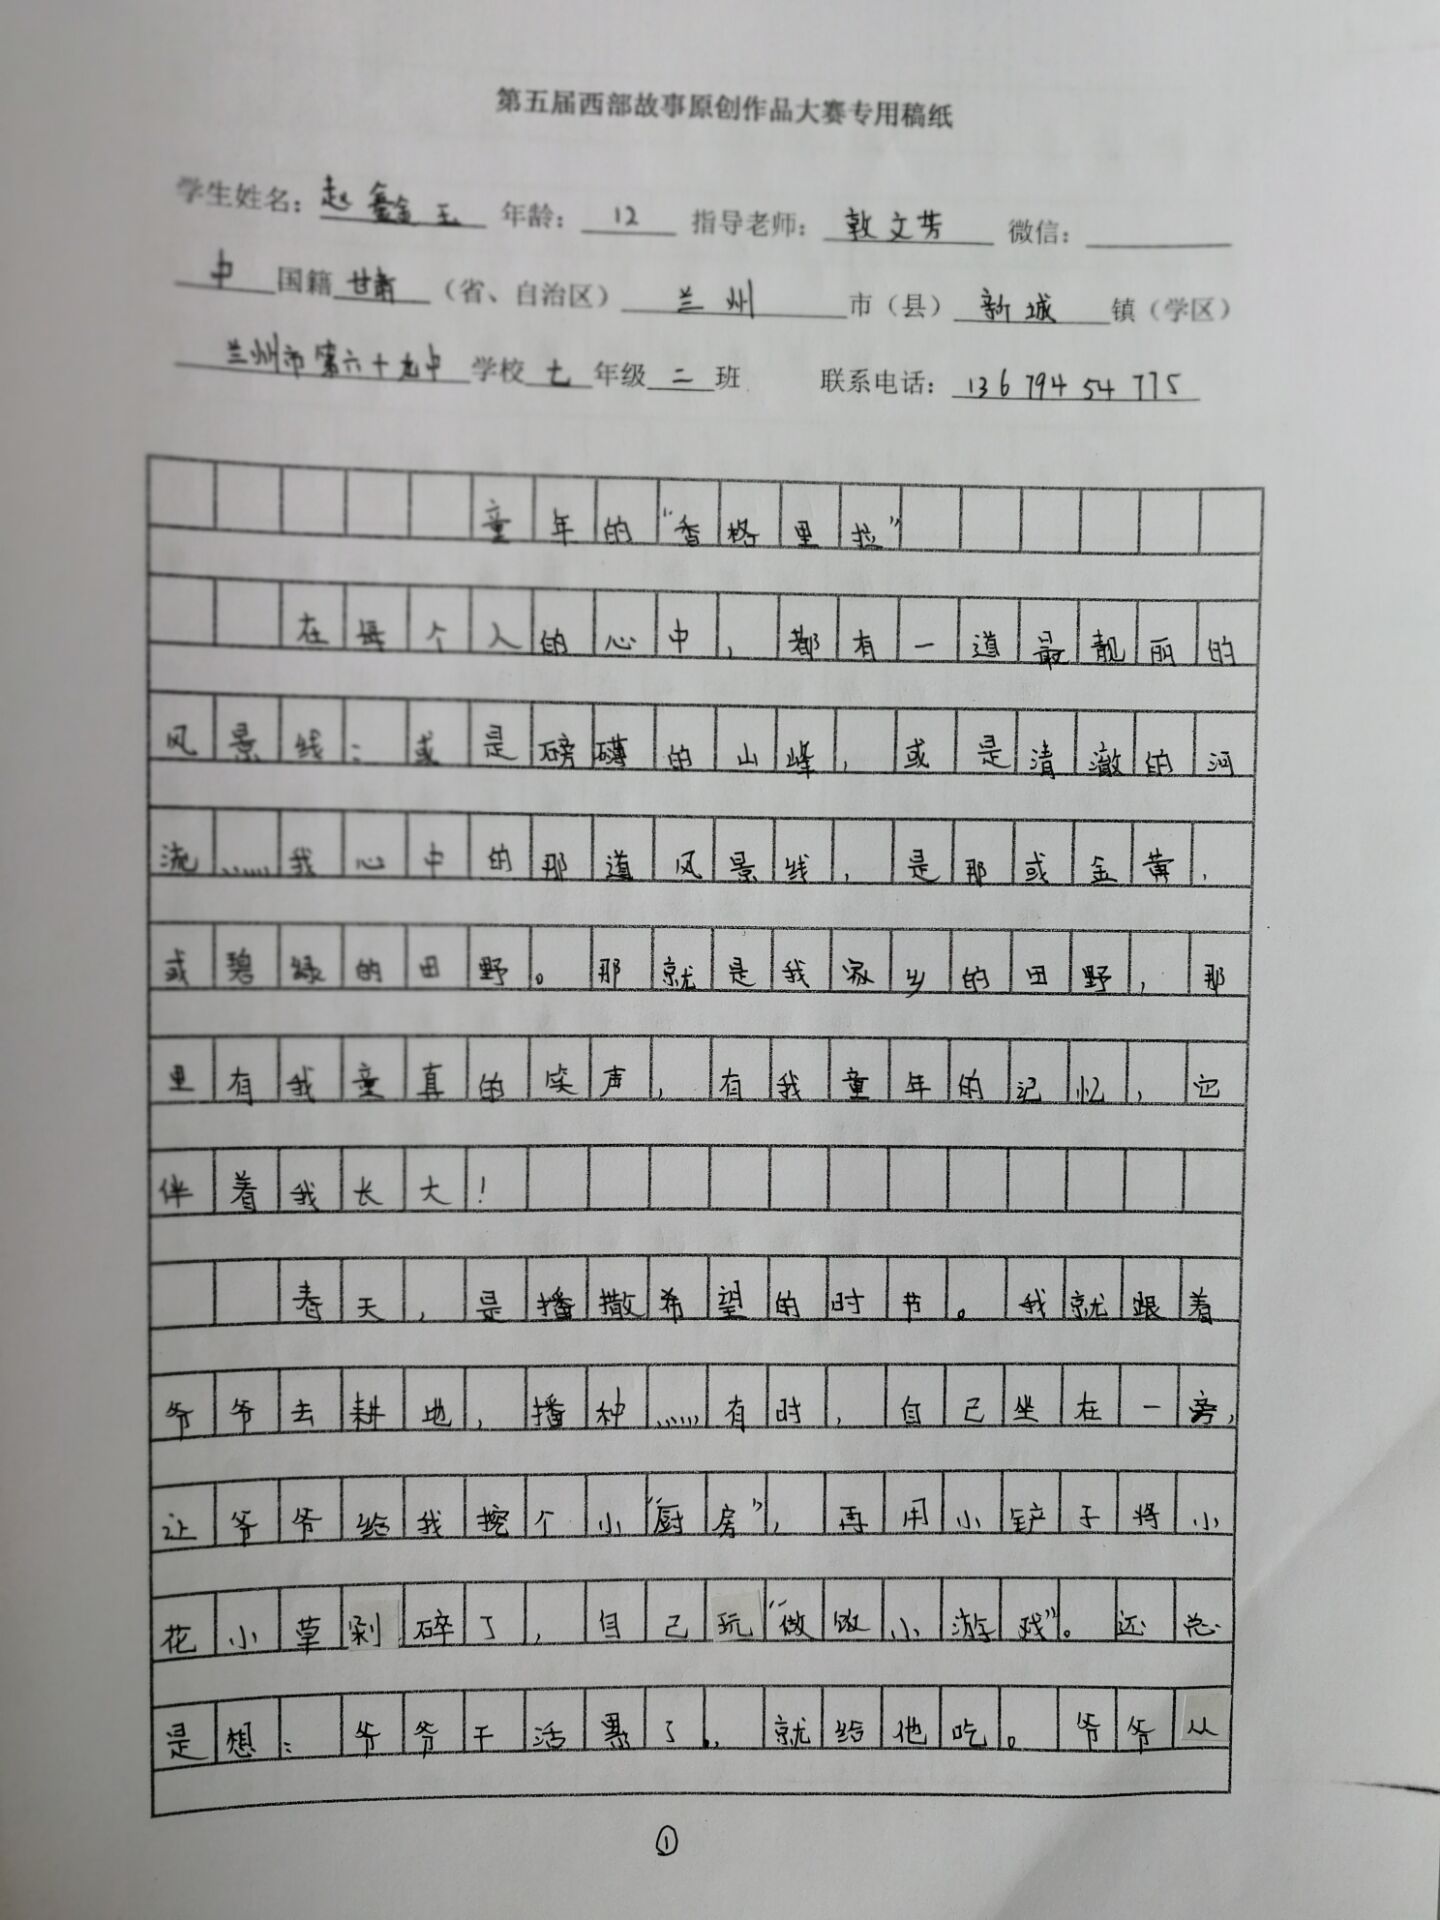 第五届西部故事原创作品大赛专用稿纸
学生姓名：赵鑫玉 年龄：12 指导老师：敦文芳 微信：
中国籍甘肃（省、自治区）兰州市（县）新城镇（学区）
兰州市第六十九中学校七年级二班 联系电话：13679454775
童年的“香格里拉”
在每个人的心中，都有一道最靓丽的
风景线：或是磅礴的山峰，或是清澈的河
流……我心中的那道风景线，是那或金黄，
或碧绿的田野。那就是我家乡的田野，那
里有我童真的笑声，有我童年的记忆，它
伴着我长大！
春天，是播撒希望的时节。我就跟着
爷爷去耕地，播种……有时，自己坐在一旁，
让爷爷给我挖个小“厨房”，再用小铲子将小
花小草剁碎了，自己玩“做饭小游戏”。还总
是想：爷爷干活累了，就给他吃。爷爷从
①